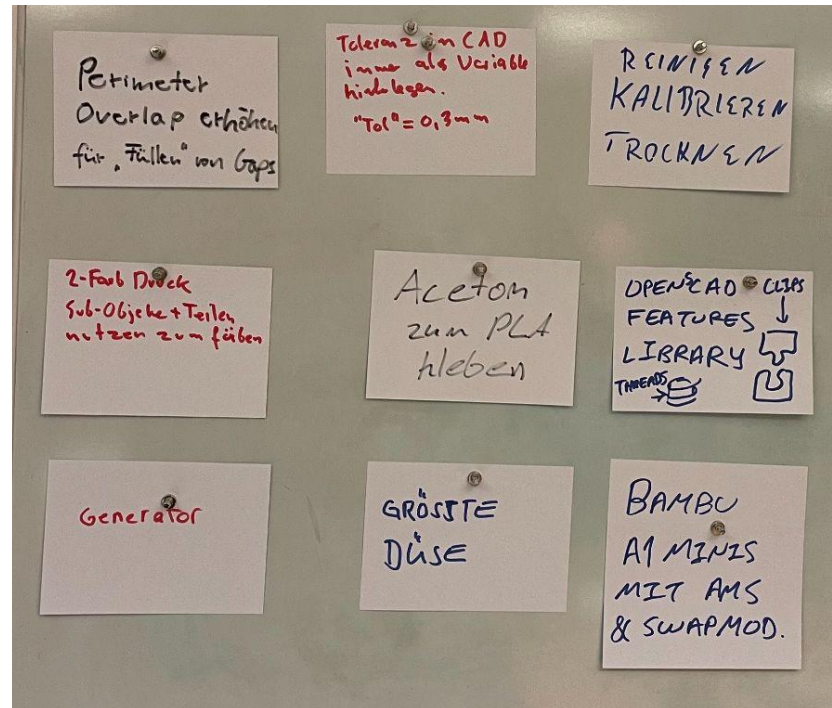 Perimeter
Overlap erhöhen
für „Füllen" von Gaps
Toleranz in CAD
immer als Variable
hinterlegen.
"Tol" = 0,3mm
REINIGEN
KALIBRIEREN
TROCKNEN
2-Farb Druck
Sub-Objekte + Teilen
nutzen zum färben
Aceton
zum PLA
kleben
OPENSCAD CLIPS
FEATURES
LIBRARY
THREADS
Generator
GRÖSSTE
DÜSE
BAMBU
A1 MINIS
MIT AMS
& SWAPMOD.